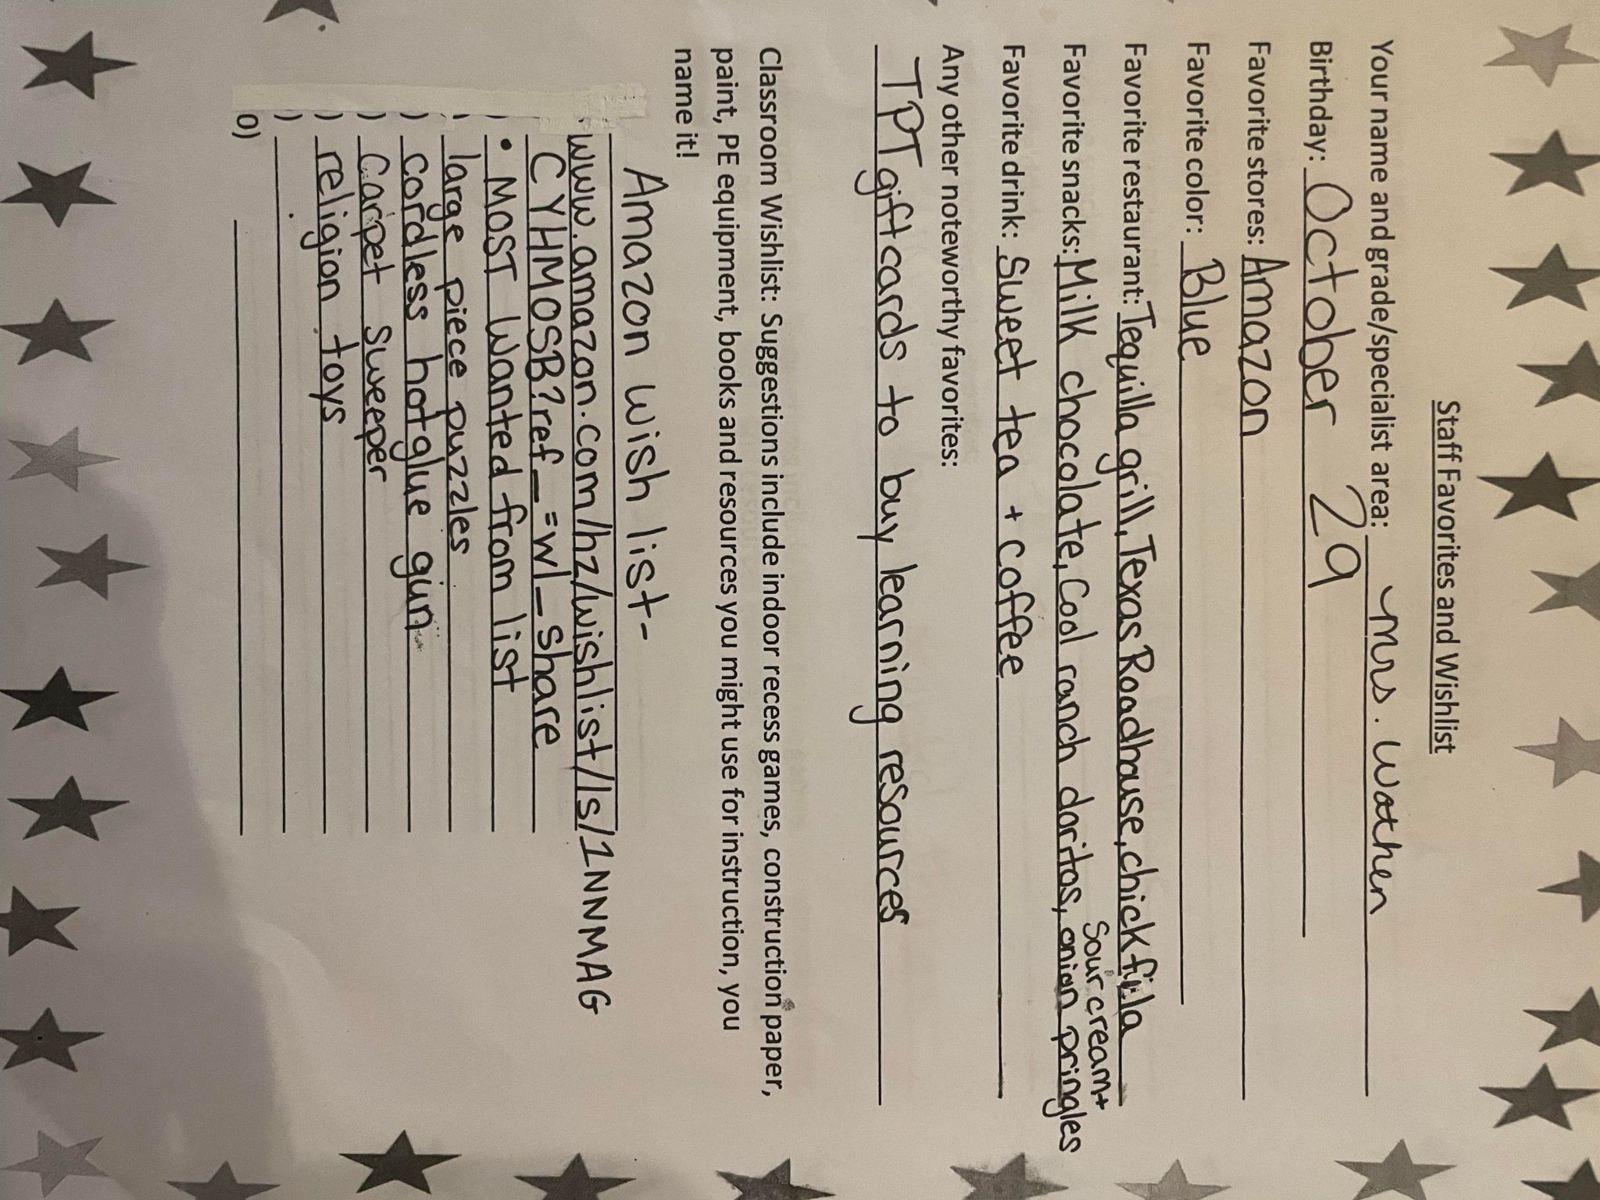 Staff Favorites and Wishlist
Your name and grade/specialist area: Mrs. Wathen
Birthday: October 29
Favorite stores: Amazon
Favorite color: Blue
Favorite restaurant: Tequilla grill, Texas Roadhouse, chickfila
Favorite snacks: Milk chocolate, Cool ranch doritos, sour cream + onion pringles
Favorite drink: Sweet tea + coffee
Any other noteworthy favorites:
TPT giftcards to buy learning resources
Classroom Wishlist: Suggestions include indoor recess games, construction paper,
paint, PE equipment, books and resources you might use for instruction, you
name it!
Amazon wish list-
www.amazon.com/hz/wishlist/ls/1NNMAG
CYHMOSB?ref_=wl_share
) • MOST wanted from list
) large piece puzzles
) cordless hot glue gun
) Carpet sweeper
) religion toys
)
0)